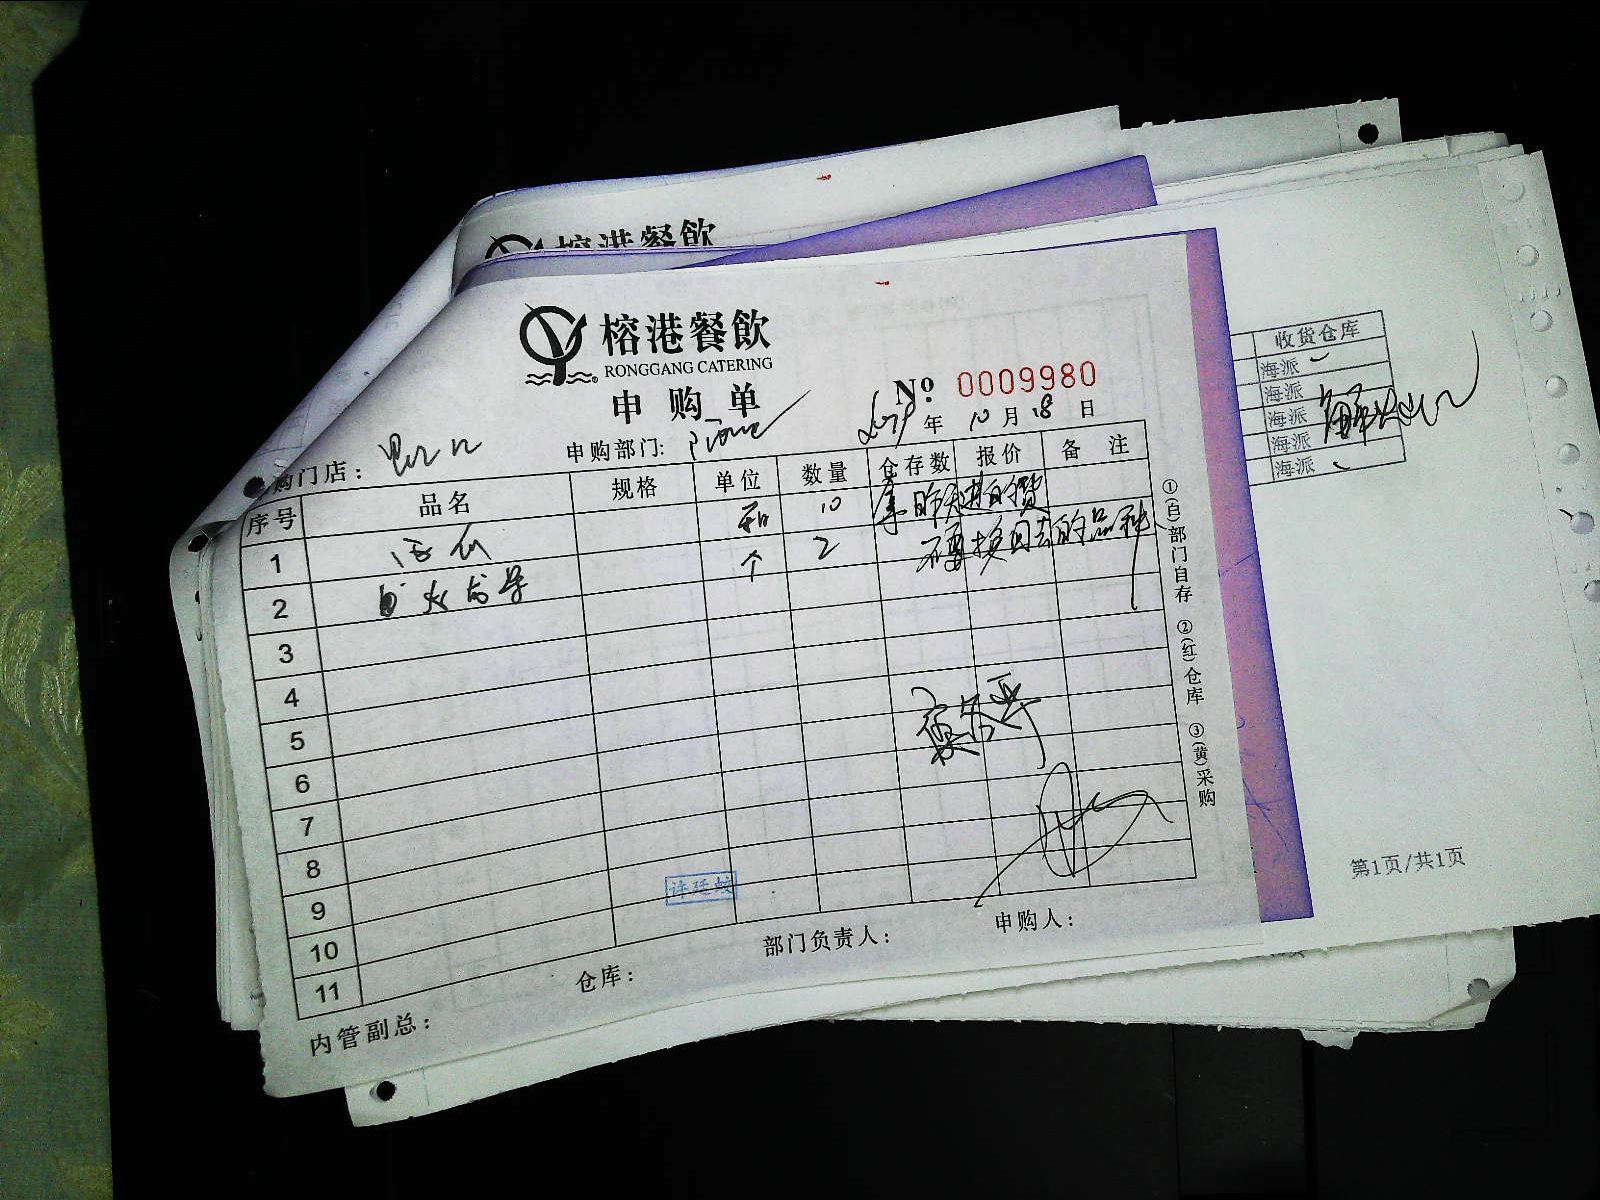 榕港餐飲
榕港餐飲
RONGGANG CATERING
申购单
№ 0009980
年 10 月 18 日
购门店:
申购部门:
序号 品名 规格 单位 数量 仓存数 报价 备注
1 10 拿昨天进的货
2 个 2 不要换回去的品种
3
4
5
6
7
8
9
10
11
①(白)部门自存 ②(红)仓库 ③(黄)采购
许廷蛟
内管副总: 仓库: 部门负责人: 申购人:
收货仓库
海派
海派
海派
海派
海派
第1页/共1页